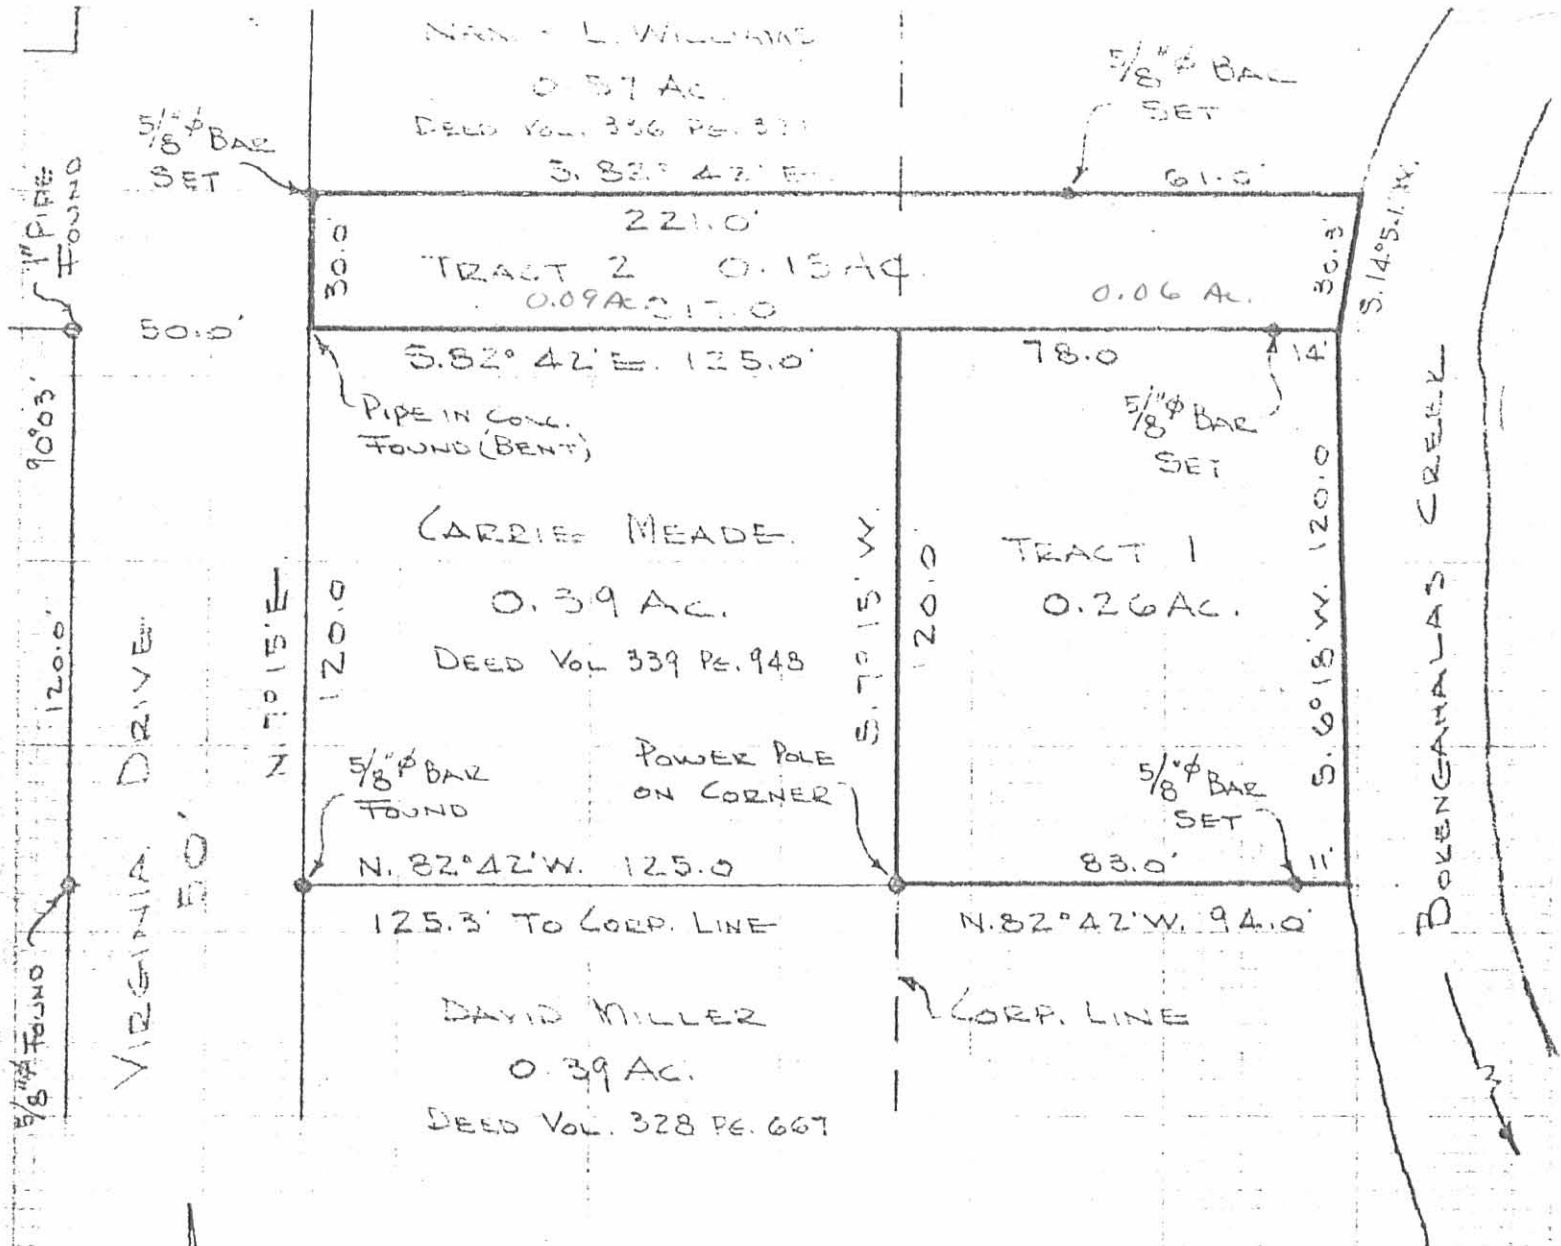 L. WILLIAMS
0.57 AC.
DEED VOL. 336 PG.
S. 82° 42' E.
5/8"⌀ BAR
SET
5/8"⌀ BAR
SET
1" PIPE
FOUND
221.0'
61.0'
30.0
TRACT 2 0.15 AC.
0.09 AC. 217.0
0.06 AC.
30.3'
S. 14° 51' W.
50.0'
S. 82° 42' E. 125.0'
78.0
14'
PIPE IN CONC.
FOUND (BENT)
5/8"⌀ BAR
SET
90°03'
120.0'
CARRIE MEADE
0.39 AC.
DEED VOL 339 PG. 948
N. 7° 15' E
120.0
S. 7° 15' W.
120.0
TRACT 1
0.26 AC.
S. 6° 18' W. 120.0
BOKENGAHALAS CREEK
VIRGINIA DRIVE
50'
5/8"⌀ BAR
FOUND
POWER POLE
ON CORNER
5/8"⌀ BAR
SET
N. 82° 42' W. 125.0
83.0'
11'
125.3' TO CORP. LINE
N. 82° 42' W. 94.0'
5/8"⌀ FOUND
DAVID MILLER
0.39 AC.
DEED VOL. 328 PG. 667
CORP. LINE